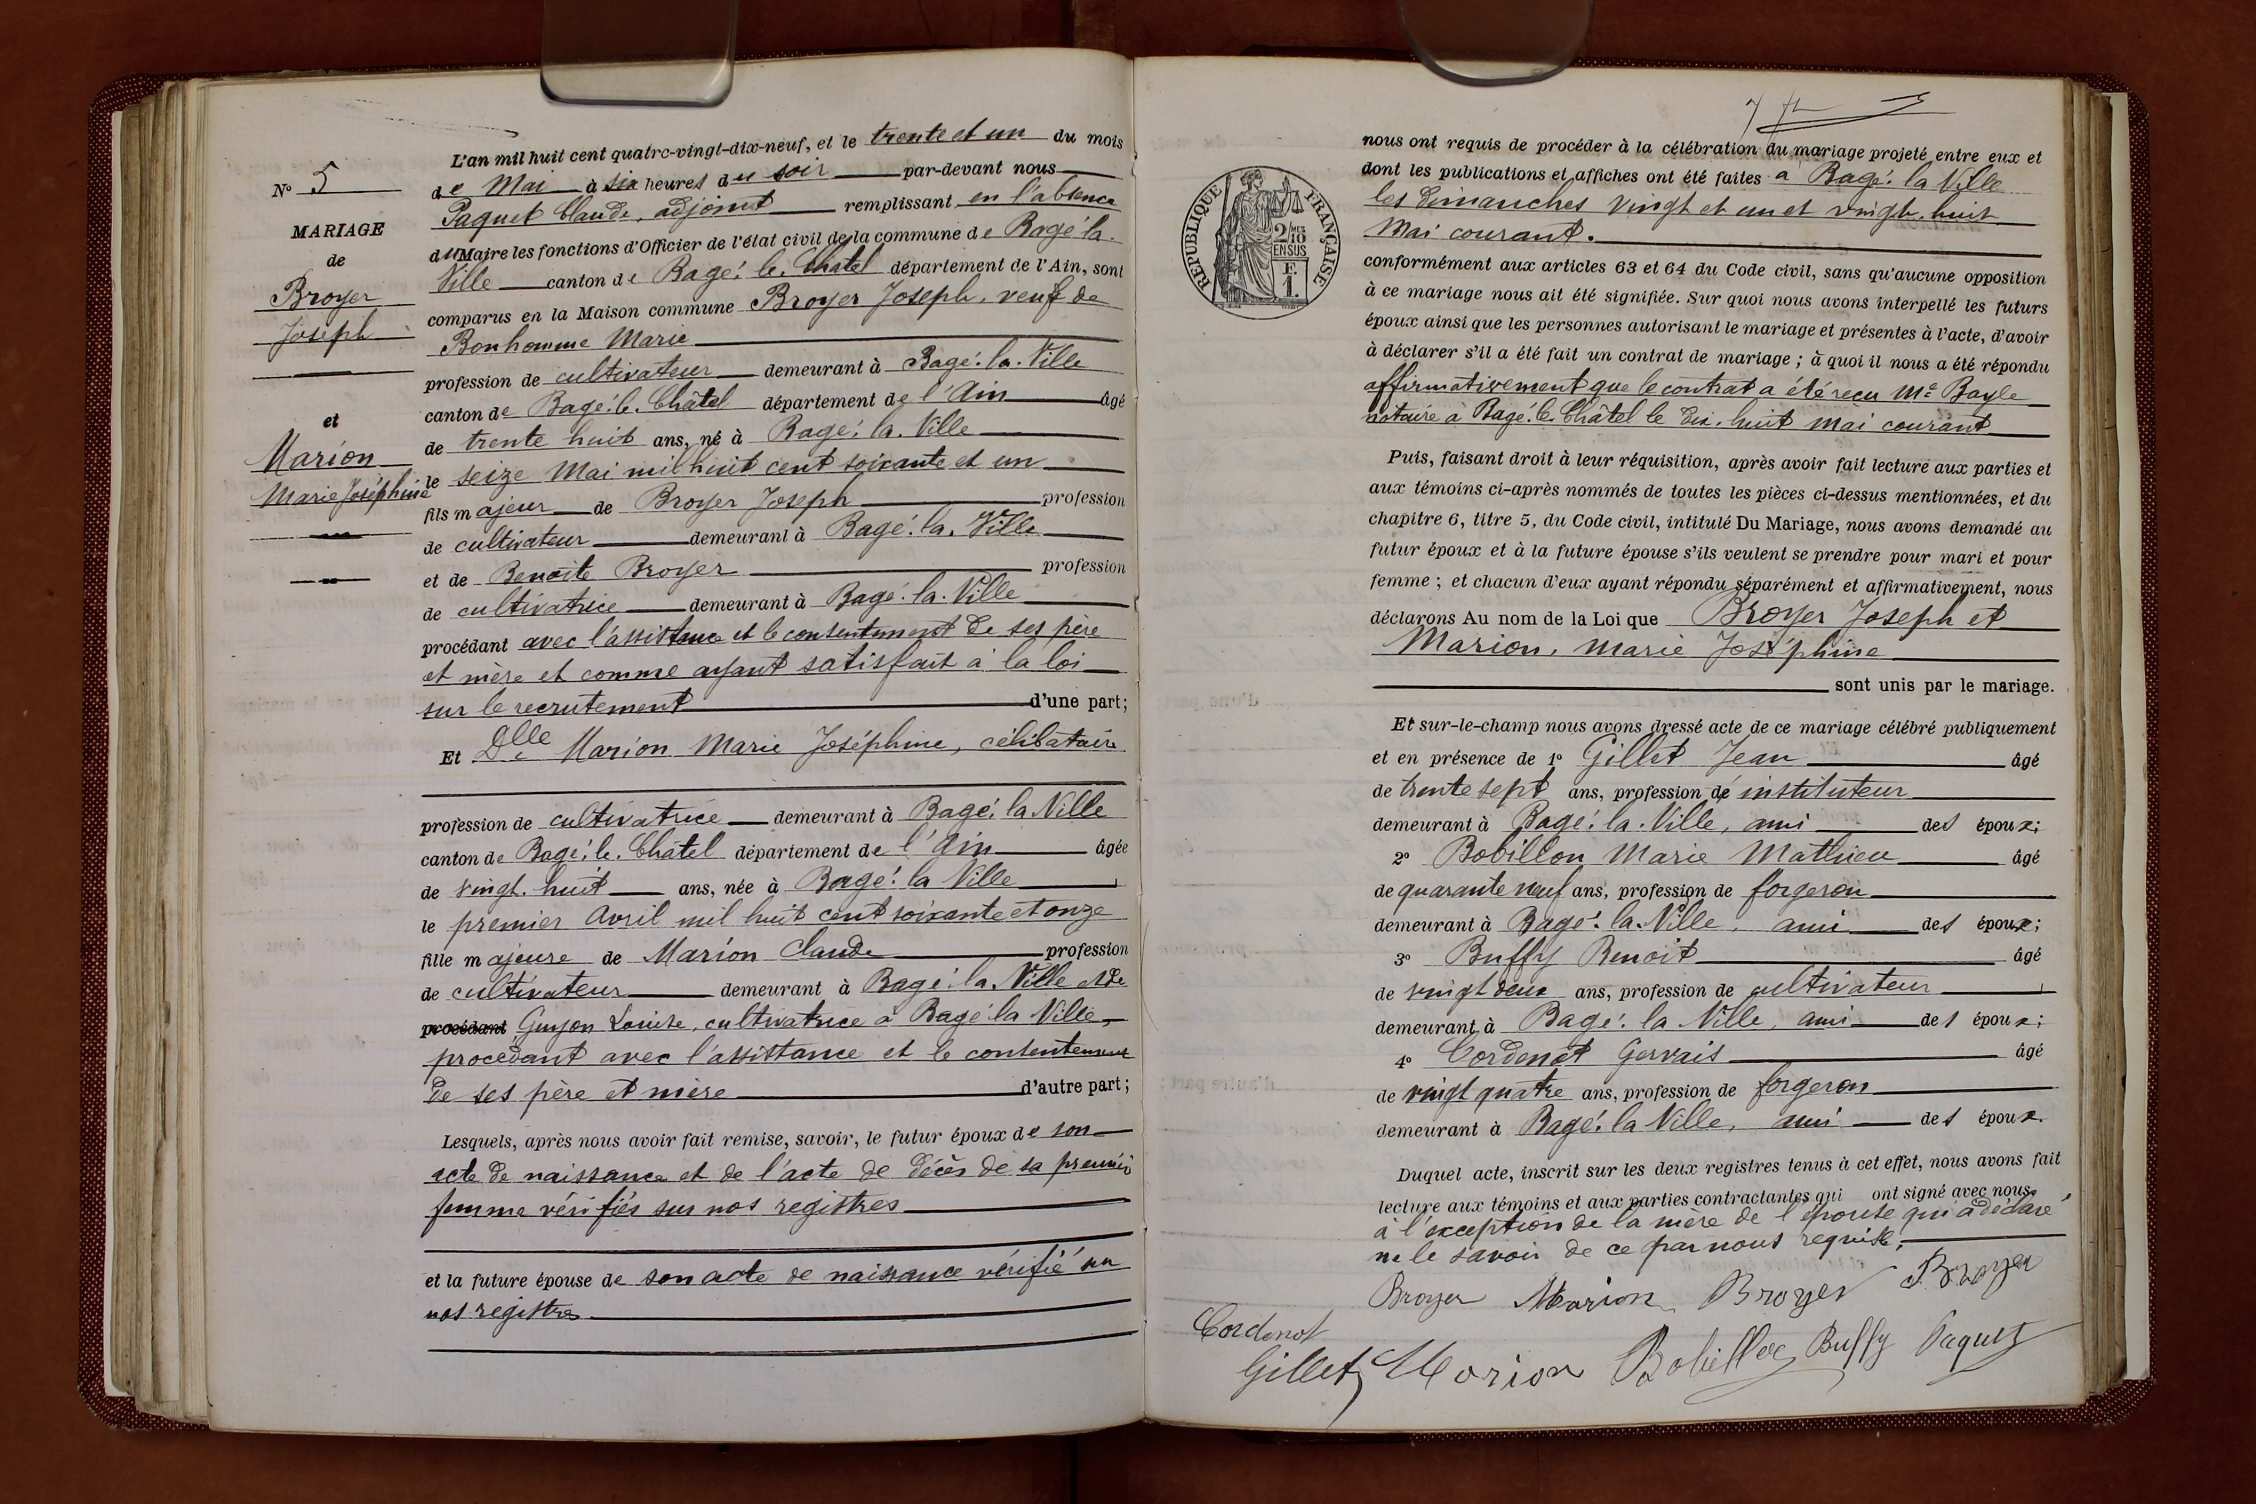 N° 5
MARIAGE
de
Broyer
Joseph
et
Marion
Marie Joséphine
L'an mil huit cent quatre-vingt-dix-neuf, et le trente et un du mois
de Mai à six heures du soir par-devant nous
Paquet Claude, adjoint remplissant en l'absence
du Maire les fonctions d'Officier de l'état civil de la commune de Bagé-la-
Ville canton de Bagé-le-Châtel département de l'Ain, sont
comparus en la Maison commune Broyer Joseph, veuf de
Bonhomme Marie
profession de cultivateur demeurant à Bagé-la-Ville
canton de Bagé-le-Châtel département de l'Ain âgé
de trente huit ans, né à Bagé-la-Ville
le seize Mai mil huit cent soixante et un
fils majeur de Broyer Joseph profession
de cultivateur demeurant à Bagé-la-Ville
et de Benoite Broyer profession
de cultivatrice demeurant à Bagé-la-Ville
procédant avec l'assistance et le consentement de ses père
et mère et comme ayant satisfait à la loi
sur le recrutement d'une part;
Et Dlle Marion Marie Joséphine, célibataire
profession de cultivatrice demeurant à Bagé-la-Ville
canton de Bagé-le-Châtel département de l'Ain âgée
de vingt-huit ans, née à Bagé-la-Ville
le premier Avril mil huit cent soixante et onze
fille majeure de Marion Claude profession
de cultivateur demeurant à Bagé-la-Ville et de
procédant Guyon Louise, cultivatrice à Bagé-la-Ville,
procédant avec l'assistance et le consentement
de ses père et mère d'autre part;
Lesquels, après nous avoir fait remise, savoir, le futur époux de son
acte de naissance et de l'acte de décès de sa première
femme vérifiés sur nos registres
et la future épouse de son acte de naissance vérifié sur
nos registres
RÉPUBLIQUE FRANÇAISE
2/10 MES
EN SUS
F.
1.
nous ont requis de procéder à la célébration du mariage projeté entre eux et
dont les publications et affiches ont été faites à Bagé-la-Ville
les dimanches vingt et un et vingt-huit
Mai courant.
conformément aux articles 63 et 64 du Code civil, sans qu'aucune opposition
à ce mariage nous ait été signifiée. Sur quoi nous avons interpellé les futurs
époux ainsi que les personnes autorisant le mariage et présentes à l'acte, d'avoir
à déclarer s'il a été fait un contrat de mariage; à quoi il nous a été répondu
affirmativement que le contrat a été reçu Me Bayle
notaire à Bagé-le-Châtel le dix-huit mai courant
Puis, faisant droit à leur réquisition, après avoir fait lecture aux parties et
aux témoins ci-après nommés de toutes les pièces ci-dessus mentionnées, et du
chapitre 6, titre 5, du Code civil, intitulé Du Mariage, nous avons demandé au
futur époux et à la future épouse s'ils veulent se prendre pour mari et pour
femme; et chacun d'eux ayant répondu séparément et affirmativement, nous
déclarons Au nom de la Loi que Broyer Joseph et
Marion, Marie Joséphine
sont unis par le mariage.
Et sur-le-champ nous avons dressé acte de ce mariage célébré publiquement
et en présence de 1° Gillet Jean âgé
de trente sept ans, profession de instituteur
demeurant à Bagé-la-Ville, ami des époux;
2° Bobillon Marie Mathieu âgé
de quarante neuf ans, profession de forgeron
demeurant à Bagé-la-Ville, ami des époux;
3° Buffy Benoit âgé
de vingt deux ans, profession de cultivateur
demeurant à Bagé-la-Ville, ami des époux;
4° Cordenot Gervais âgé
de vingt quatre ans, profession de forgeron
demeurant à Bagé-la-Ville, ami des époux.
Duquel acte, inscrit sur les deux registres tenus à cet effet, nous avons fait
lecture aux témoins et aux parties contractantes qui ont signé avec nous
à l'exception de la mère de l'épouse qui a déclaré
ne le savoir de ce par nous requise.
Broyer Marion Broyer B. Broyer
Cordenot
Gillet Marion Bobillon Buffy Paquet